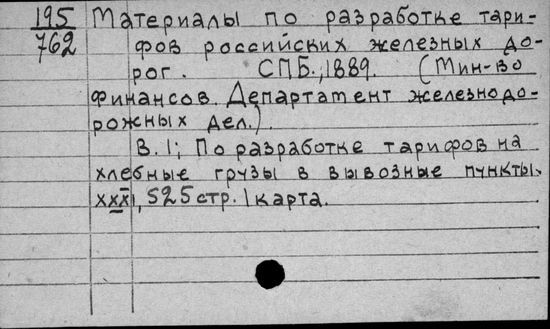 195 Материалы по разработке тари-
762 фов российских железных до-
рог. СПБ., 1889. (Мин-во
финансов. Департатент железнодо-
рожных дел.).
В. 1; По разработке тарифов на
хлебные грузы в вывозные пункты.
XXXI, 525 стр. 1 карта.